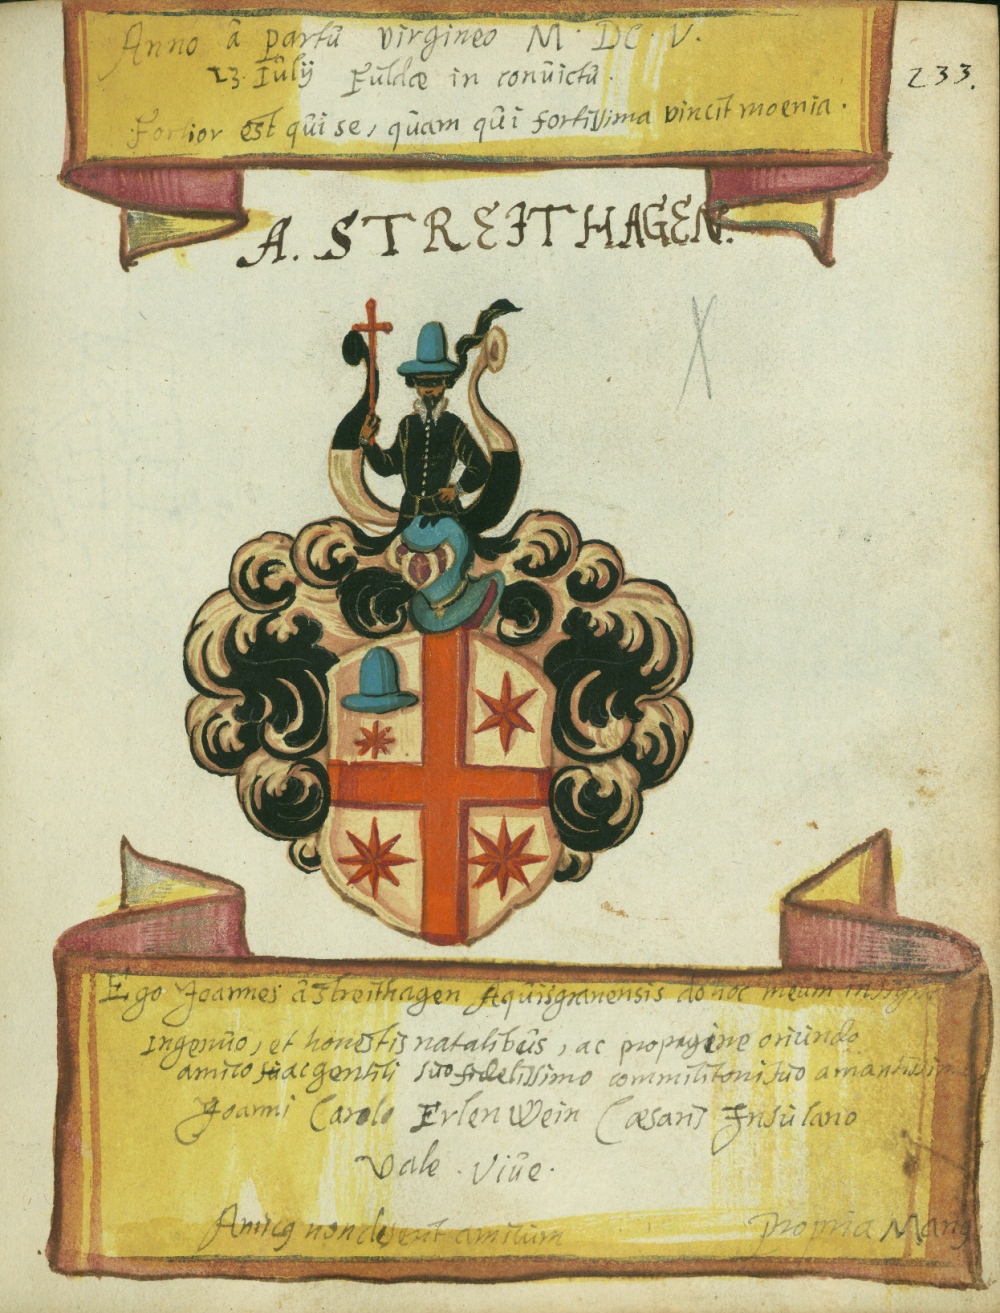 Anno â partû virgineo M. DC. V.
233.
23 Iûlij Fûldæ in convictû.
Fortior est qûi se, qûam qûi fortissima vincit moenia.
A. STREITHAGEN.
Ego Joannes â Streithagen Aqûisgranensis do hoc meum
ingenûo, et honestis natalibûs, ac propagine oriûndo
amico sûo fidelissimo commilitoni sûo
Joanni Carolo Erlenwein Cæsaris Insûlano
Vale. Vive.
Amicus non amicum
Propria Manq